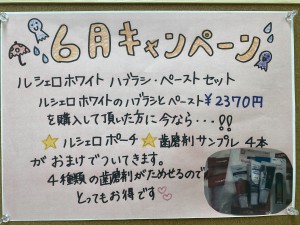 6月キャンペーン
ルシェロホワイト ハブラシ・ペースト セット
ルシェロホワイトのハブラシとペースト¥2370円
を購入して頂いた方に今なら・・・!!
☆ルシェロポーチ☆歯磨剤サンプル 4本
がおまけでついてきます。
4種類の歯磨剤がためせるので
とってもお得です♡♡